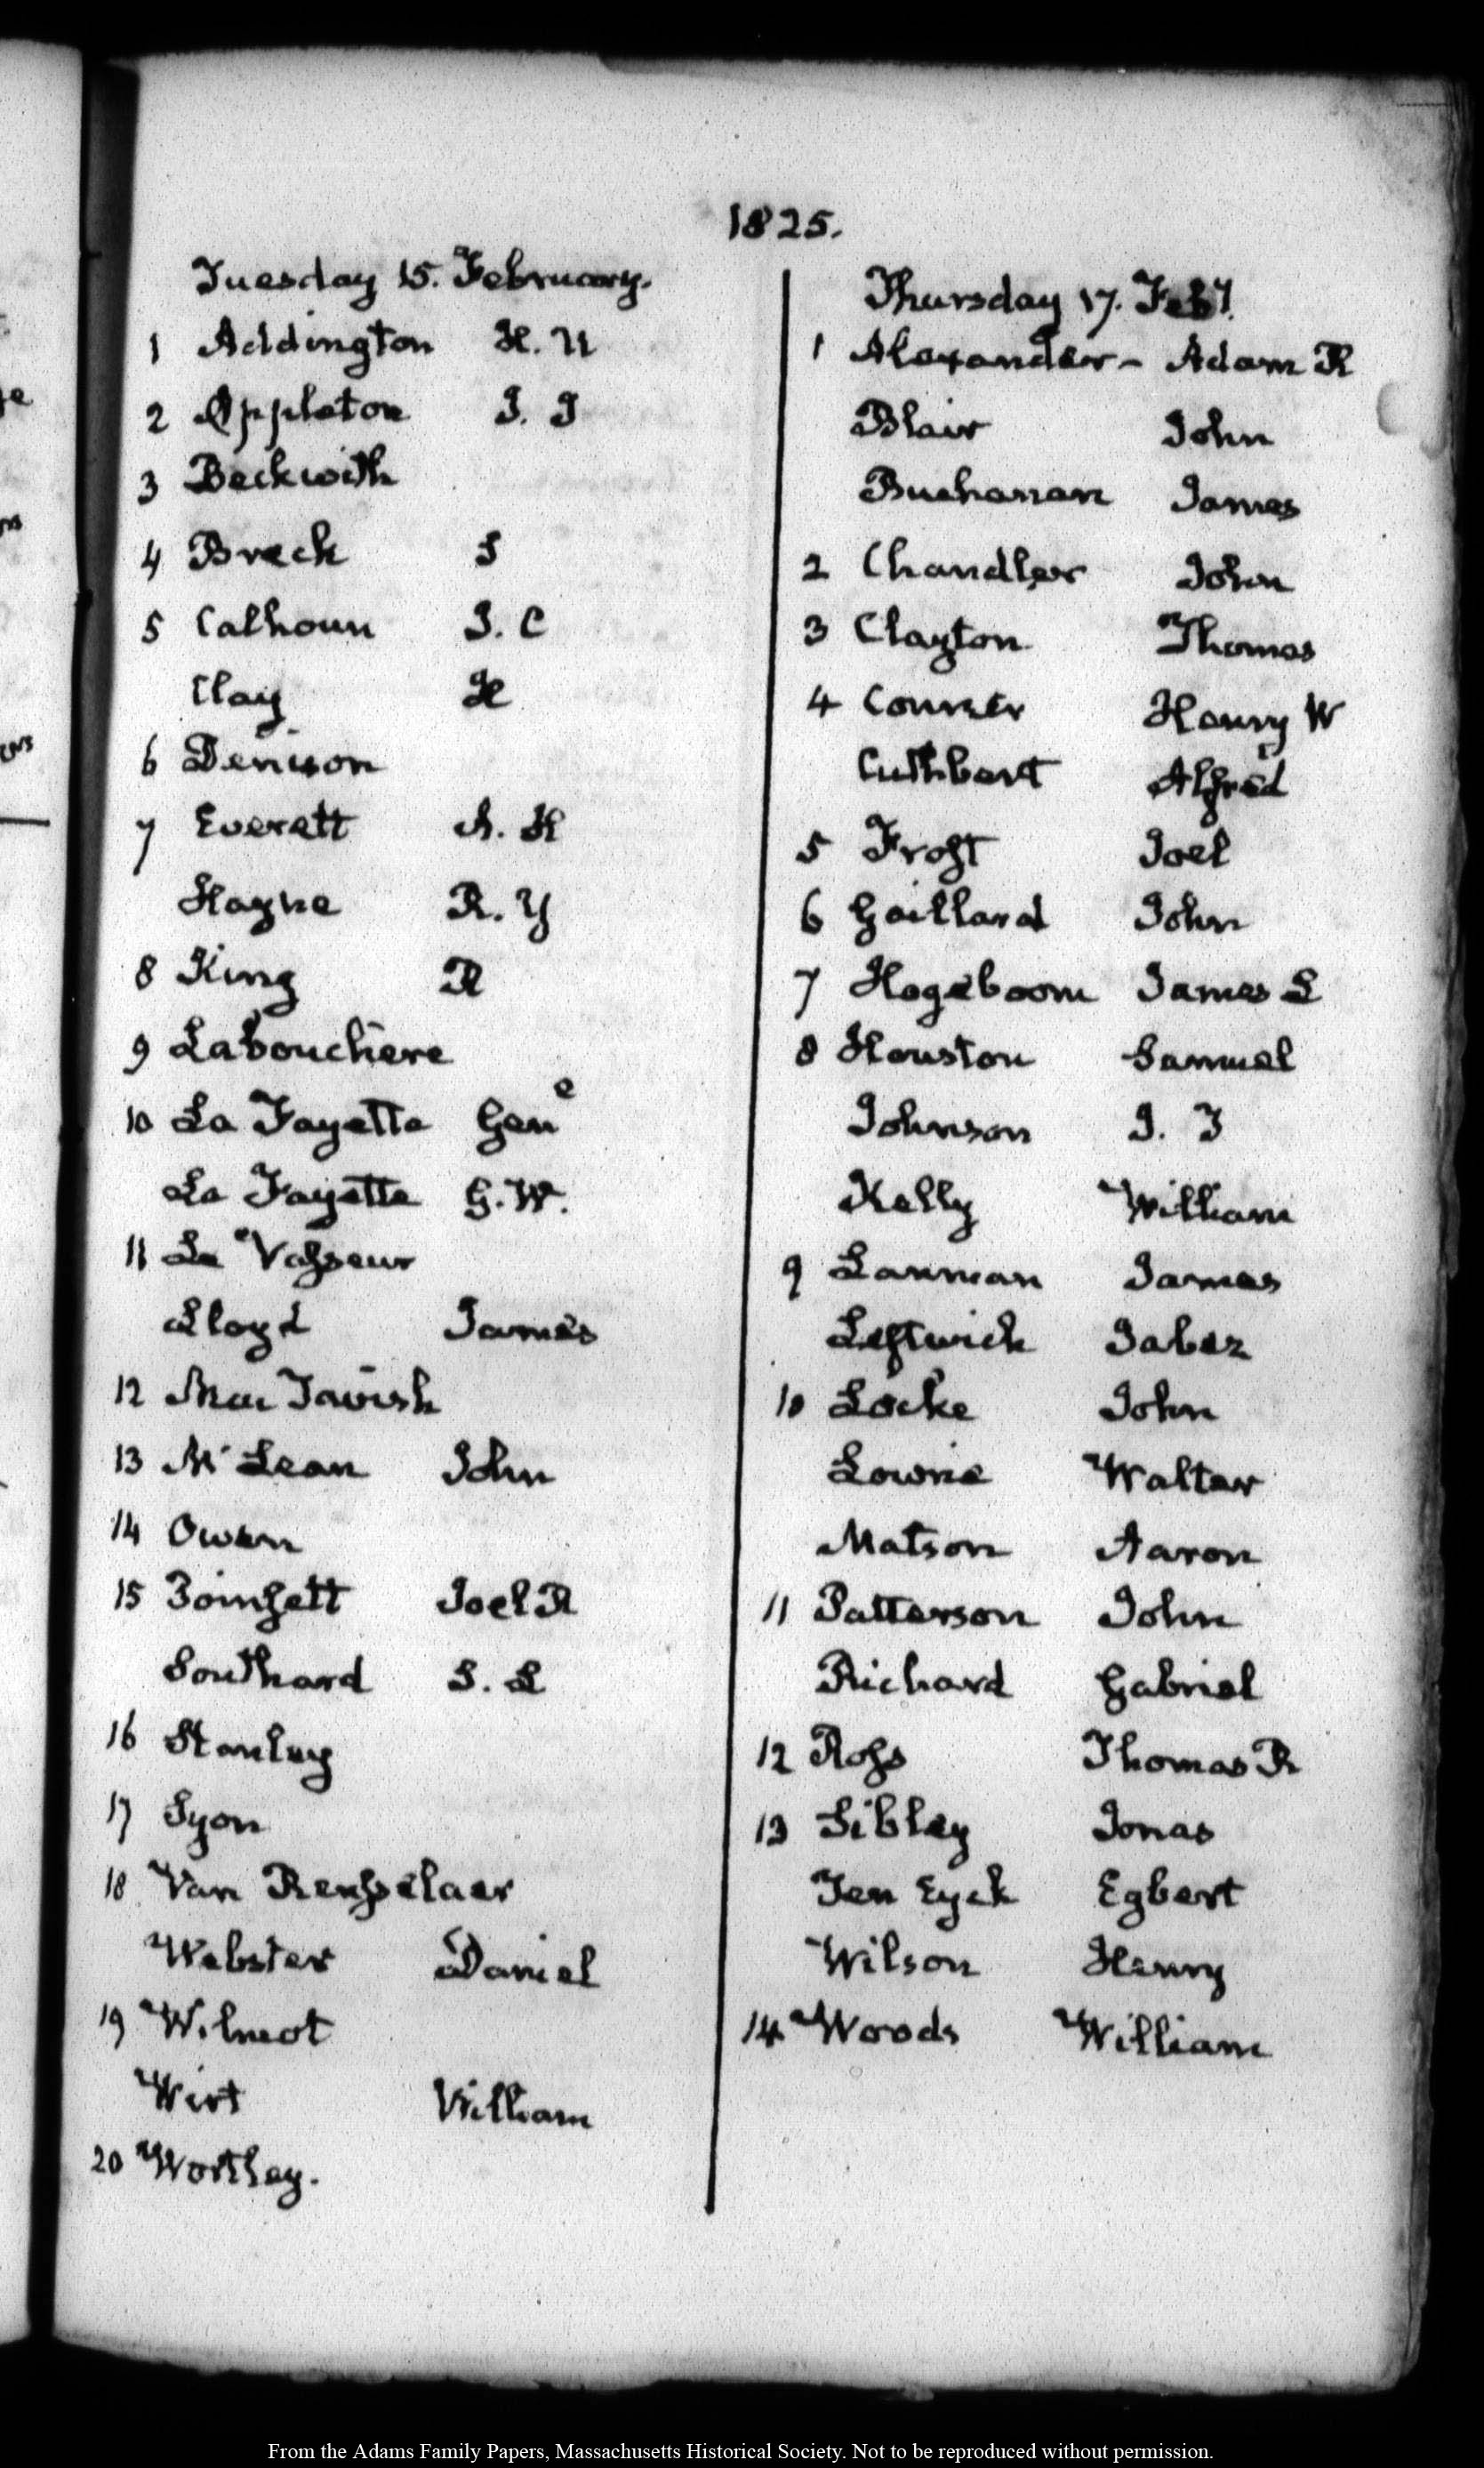 1825.
Tuesday 15. February.
1 Addington H. U
2 Appleton J. J
3 Beckwith
4 Breck S
5 Calhoun J. C
Clay H
6 Denison
7 Everett A. H
Hayne R. Y
8 King R
9 Labouchere
10 La Fayette Gen^e
La Fayette G. W.
11 Le Vasseur
Lloyd James
12 Mac Tavish
13 Mc Lean John
14 Owen
15 Poinsett Joel R
Southard S. L
16 Stanley
17 Syon
18 Van Rensselaer
Webster Daniel
19 Wilmot
Wirt William
20 Wortley.
Thursday 17. Feby.
1 Alexander - Adam R
Blair John
Buchanan James
2 Chandler John
3 Clayton Thomas
4 Conner Henry W
Cuthbert Alfred
5 Frost Joel
6 Gaillard John
7 Hogeboom James L
8 Houston Samuel
Johnson J. T
Kelly William
9 Lanman James
Leftwich Jabez
10 Locke John
Lowrie Walter
Matson Aaron
11 Patterson John
Richard Gabriel
12 Ross Thomas R
13 Sibley Jonas
Ten Eyck Egbert
Wilson Henry
14 Woods William
From the Adams Family Papers, Massachusetts Historical Society. Not to be reproduced without permission.